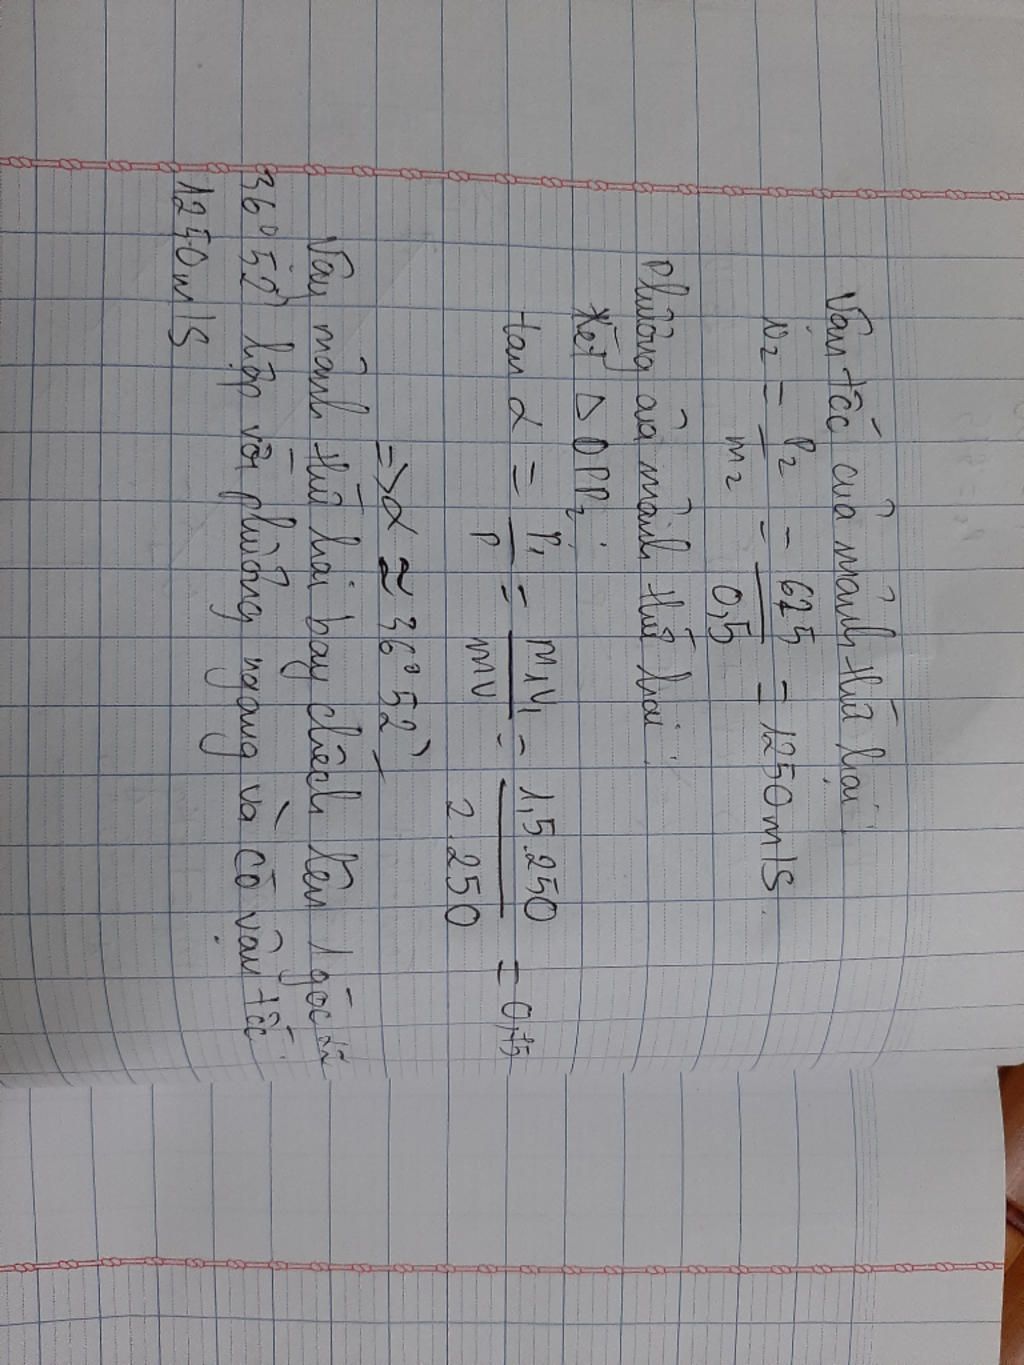 Vận tốc của mảnh thứ hai
v₂ = P₂/m₂ = 625/0,5 = 1250m/s
Phương của mảnh thứ hai
Xét Δ OPP₂:
tan α = P₁/P = m₁v₁/mv = 1,5.250/2.250 = 0,75
=> α ≈ 36°52'
Vậy mảnh thứ hai bay chếch lên 1 góc ≈
36°52' hợp với phương ngang và có vận tốc
1250m/s